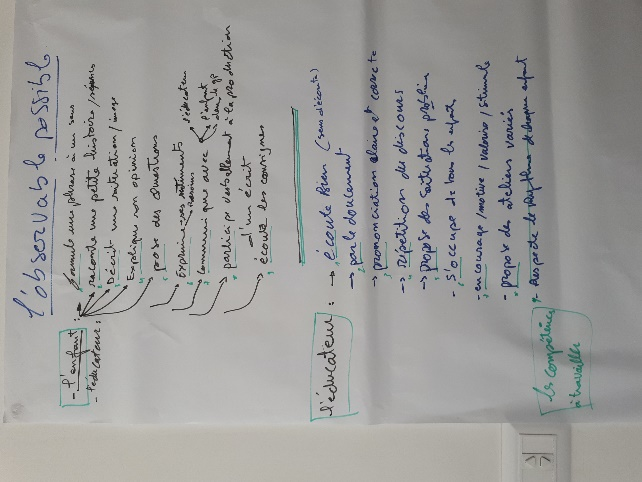 L'observable possible
- l'enfant :
- l'éducateur :
formule une phrase à un sens
raconte une petite histoire /
Décrit une situation / image
Explique son opinion
pose des questions
Exprime ses sentiments
besoins
communique avec
l'éducateur
l'enfant
participe verbalement à la production
d'un écrit
écoute les consignes
l'éducateur :
→ écoute bien (sens d'écoute)
→ parle doucement
→ prononciation claire et correcte
→ répétition du discours
→ propose des situations problème
- s'occupe de tous les enfants
- encourage / motive / valorise / stimule
- propose des ateliers variés
respecte le rythme de chaque enfant
les compétences
à travailler